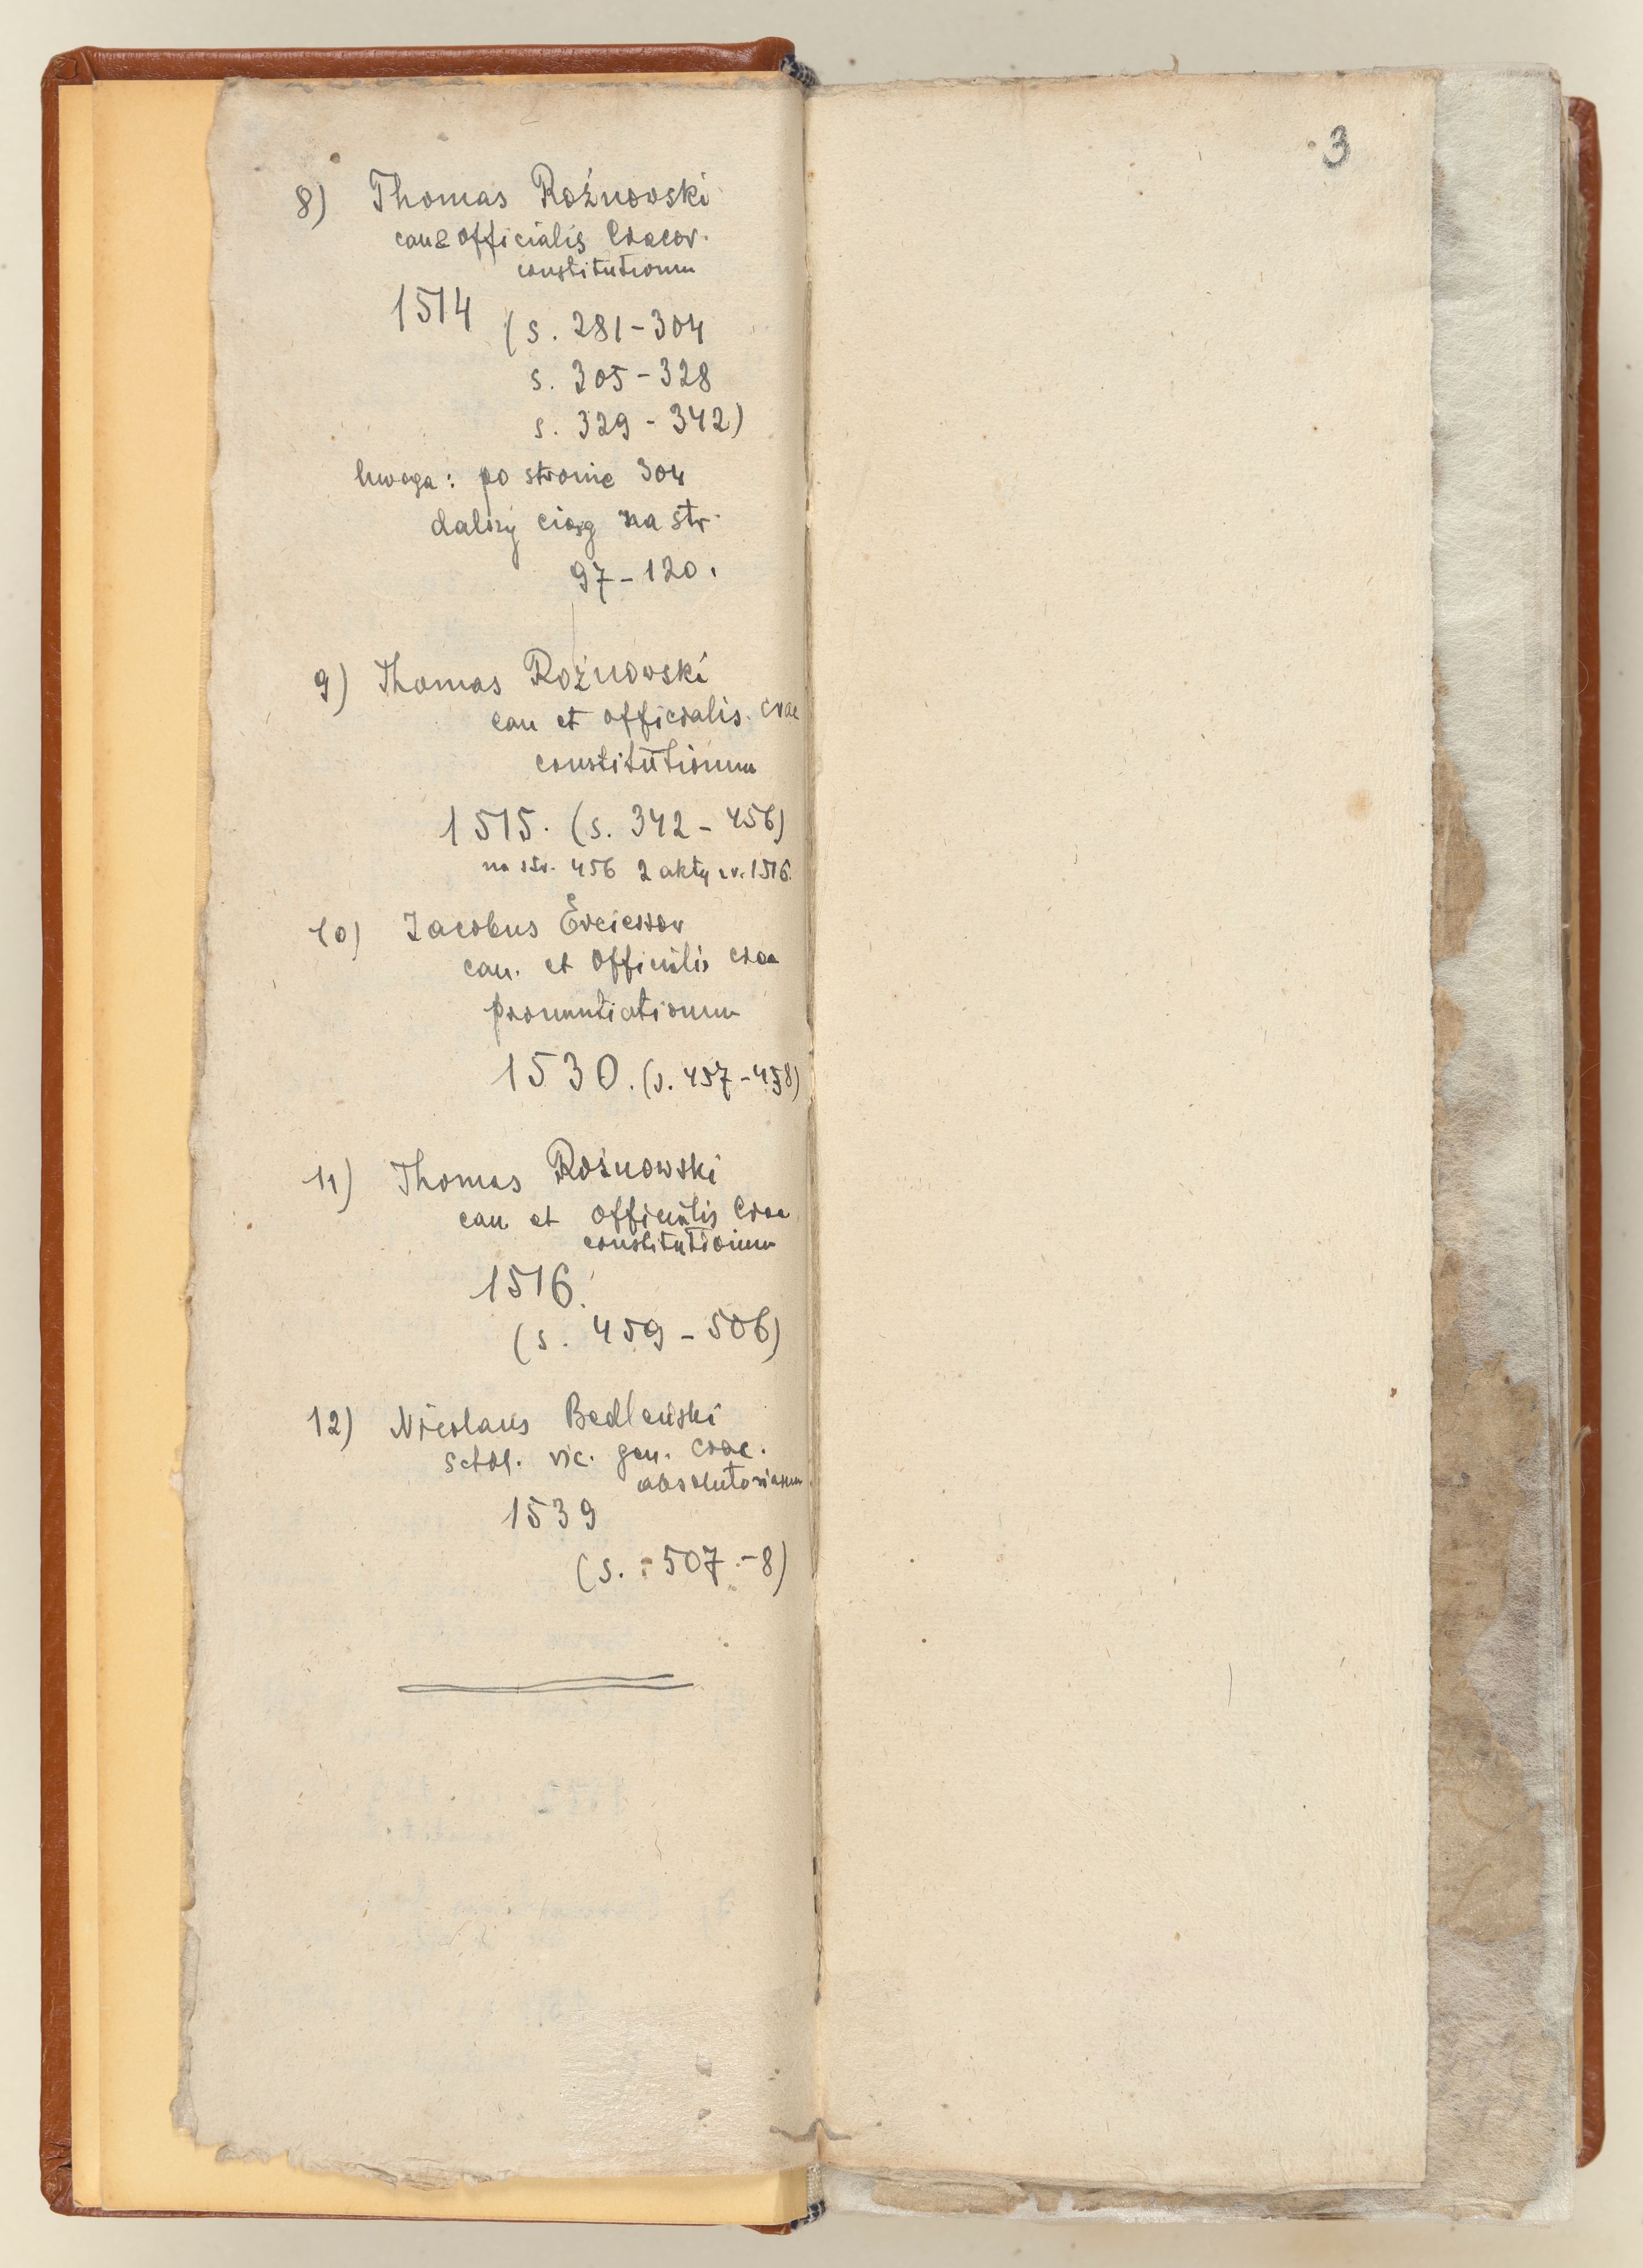 8) Thomas Rożnowski
can & officialis Cracov.
constitutionum
1514 (s. 281-304
s. 305-328
s. 329-342)
Uwaga: po stronie 304
dalszy ciąg na str.
97-120.
9) Thomas Rożnowski
can et officialis. crac
constitutionum
1515. (s. 342-456)
na str. 456 2 akty z r. 1516.
10) Jacobus Erciessov
can. et Officialis crac
pronuntiationum
1530. (s. 457-458)
11) Thomas Rożnowski
can et Officialis Crac
constitutionum
1516.
(s. 459-506)
12) Nicolaus Bedleński
schol. vic. gen. crac.
absolutoriarum
1539
(s. 507-8)
3